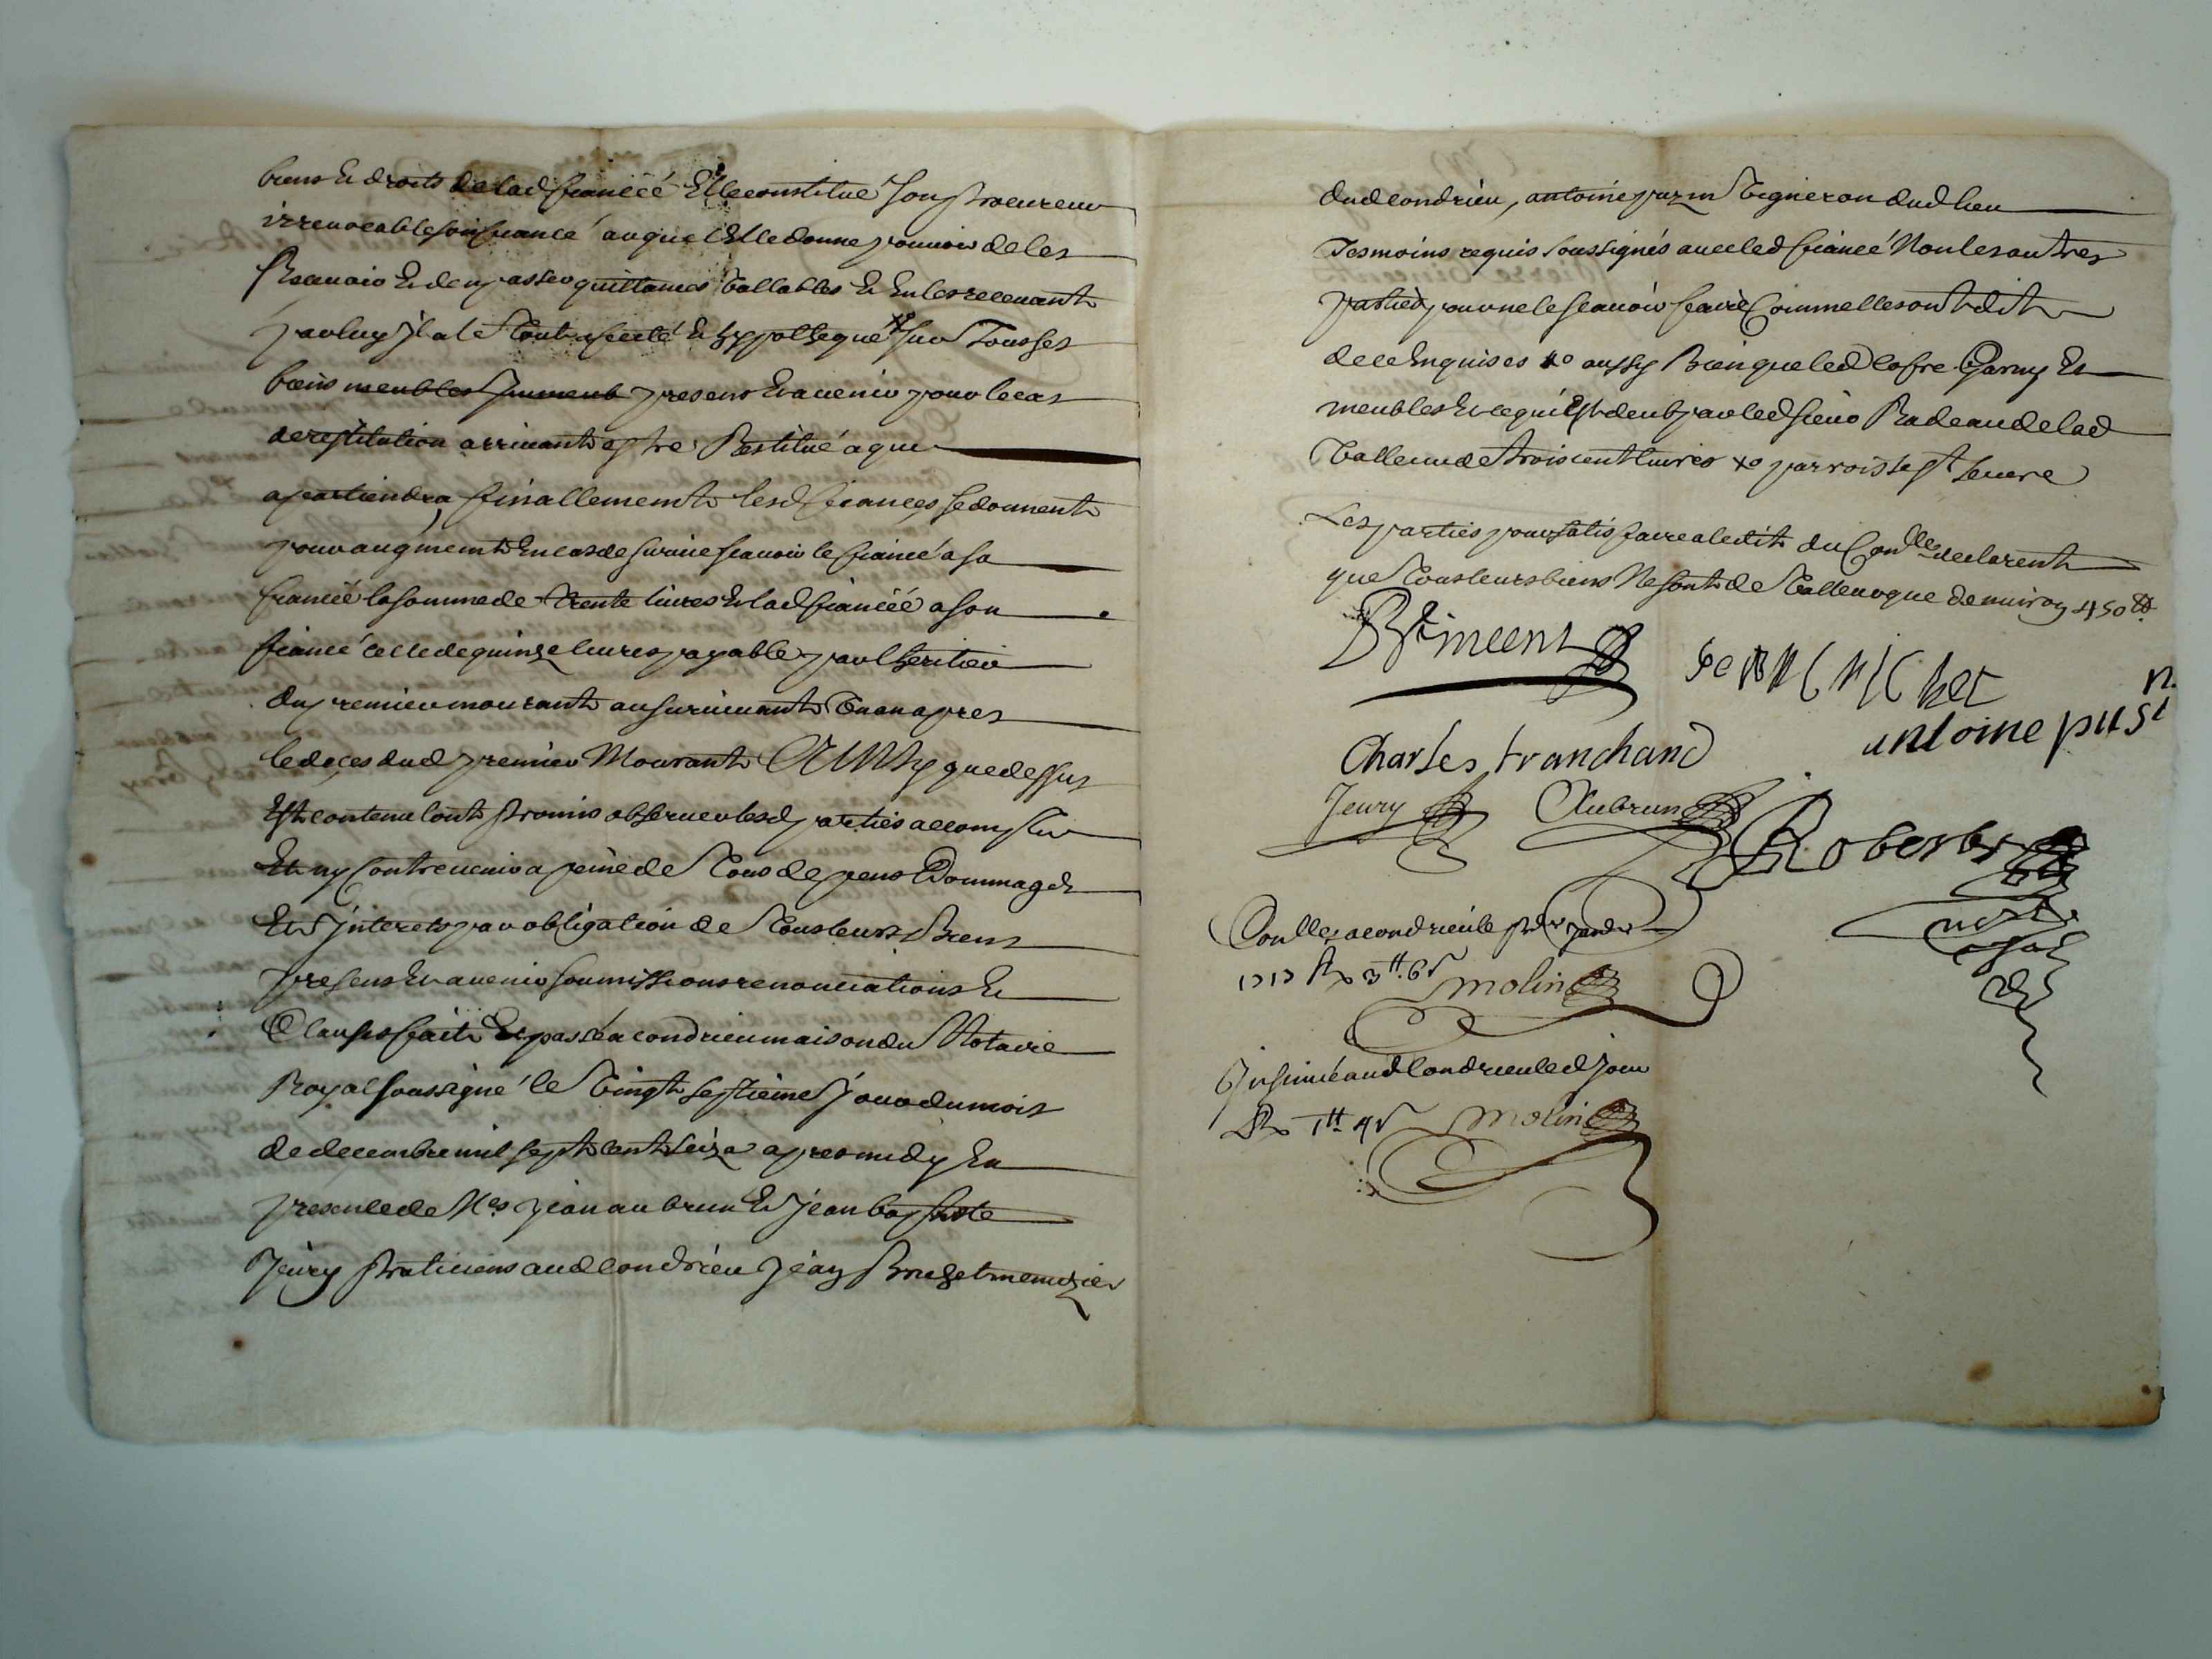 biens & droits de lad fiancéé Elle constitue son procureur
irrevocable son fiancé auquel Elle donne pouvoir de les
Recevoir & den passer quittances vallables & En les recevant
par luy Il a le tout afecté & hyppothequé xo sur tous ses
biens meubles Immeub presens & avenir pour le cas
de restitution arrivant estre Restitué a qui
apartiendra, finallement lesd fiances se donnent
pour augment En cas de survie scavoir le fiancé a sa
fiancéé la somme de trente livres & lad fiancéé a son
fiancé celle de quinze livres payable par lheritier
du premier mourant au survivant un an apres
le deces dud premier Mourant Ainsy que dessus
Est contenu lont promis observer lesd parties accomplir
Et ny Contrevenir a peine de tous depens Dommages
Et Interets par obligation de tous leurs Biens
presens & avenir soumissions renonciations &
Clauses fait & passé a condrieu maison du Notaire
Royal soussigné le vingt septieme Jour du mois
de decembre mil sept cent seize apres midy En
presence de Mes Jean aubrun & Jean baptiste
Jeury praticiens aud condrieu Jean Bruchet menuzier
dud condrieu, antoine puzin vigneron dud lieu
Tesmoins requis soussignés avec led fiancé Non les autres
parties pour ne le scavoir faire Comme elles ont dit
de ce Enquises xo aussy Bien que led cofre Garny &
meubles & ce qui Est deub par led sieur Radeau de lad
valleur de trois cent livres xo parroisse st severe
Les parties pour satisfaire a ledit du Conlle declarent
que tous leurs biens Ne sont de valleur que denviron 450 tt
Bt vincent
Jean bruchet
antoine pusin
Charles tranchand
Jeury
Aubrun
Robert
nore
Conllé a condrieu le
1717 R 3 tt. 6 s
molin
Insinué aud Condrieu led jour
R 1 tt 4 s
molin